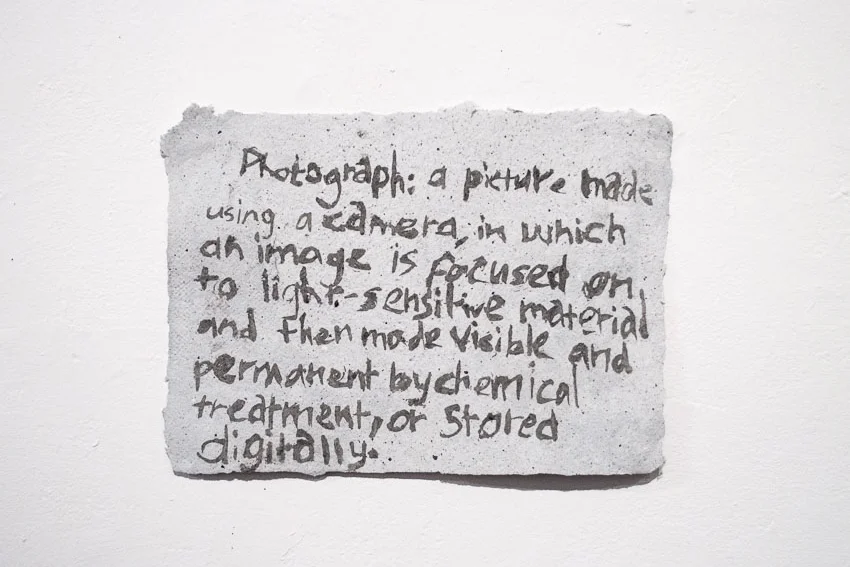 Photograph: a picture made
using a camera, in which
an image is focused on
to light-sensitive material
and then made visible and
permanent by chemical
treatment, or stored
digitally.